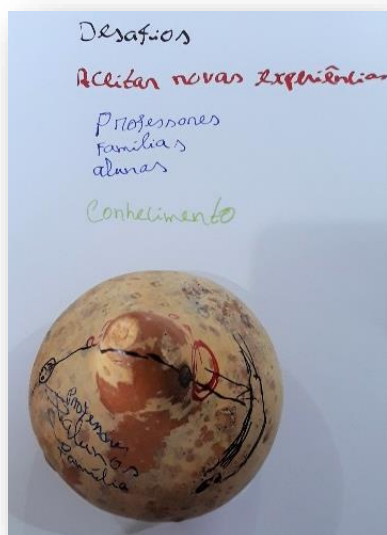 Desafios
Aceitar novas experiências
Professores
Famílias
alunos
Conhecimento
Professores
Alunos
Família